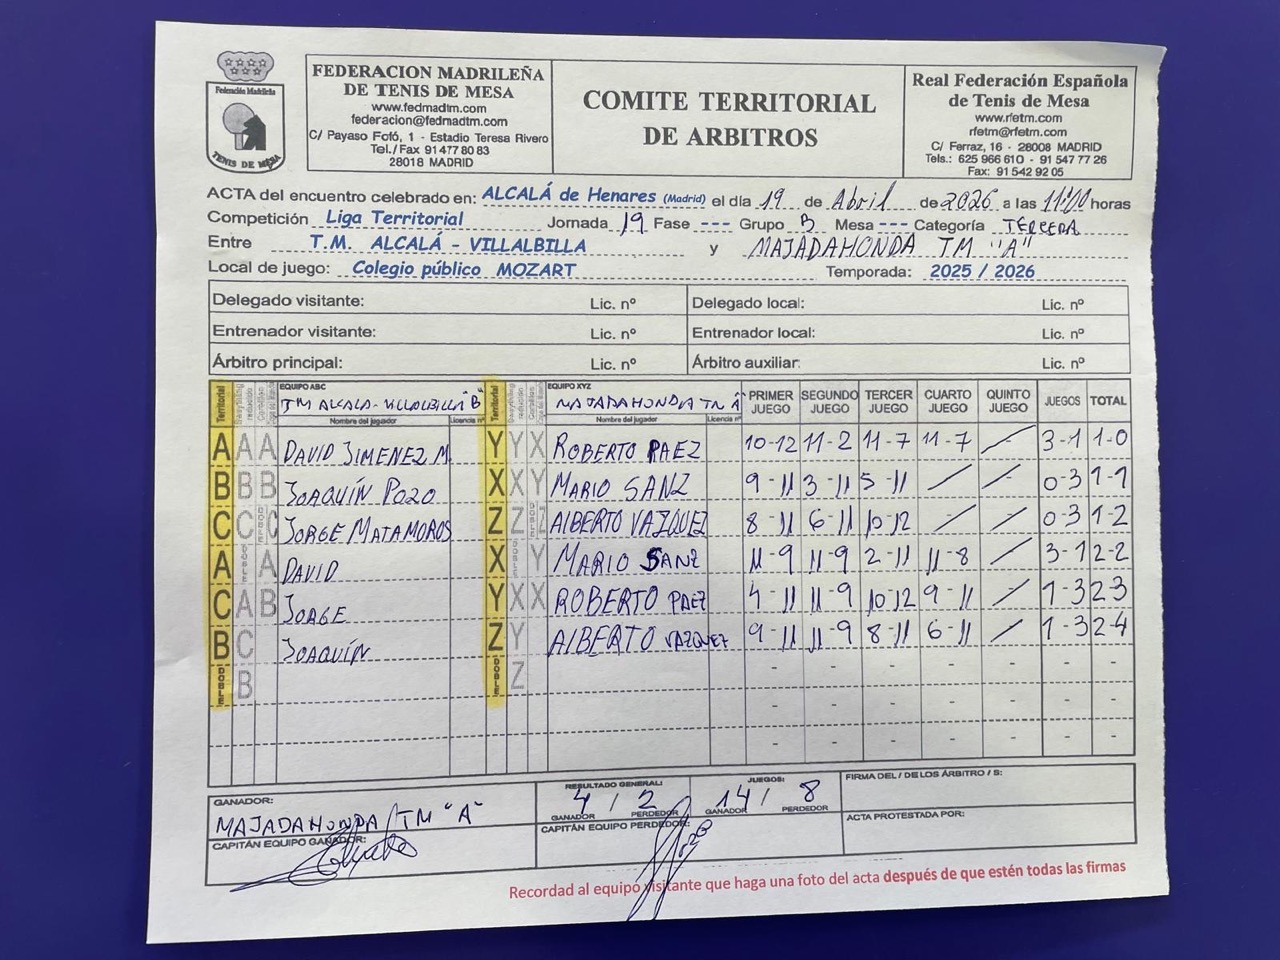 Federación Madrileña
TENIS DE MESA
FEDERACION MADRILEÑA
DE TENIS DE MESA
www.fedmadtm.com
federacion@fedmadtm.com
C/ Payaso Fofó, 1 - Estadio Teresa Rivero
Tel./Fax 91 477 80 83
28018 MADRID
COMITE TERRITORIAL
DE ARBITROS
Real Federación Española
de Tenis de Mesa
www.rfetm.com
rfetm@rfetm.com
C/ Ferraz, 16 - 28008 MADRID
Tels.: 625 966 610 - 91 547 77 26
Fax: 91 542 92 05
ACTA del encuentro celebrado en: ALCALÁ de Henares (Madrid) el día 19 de Abril de 2026 a las 11:10 horas
Competición Liga Territorial Jornada 19 Fase --- Grupo B Mesa --- Categoría TERCERA
Entre T.M. ALCALÁ - VILLALBILLA y MAJADAHONDA TM "A"
Local de juego: Colegio público MOZART Temporada: 2025 / 2026
Delegado visitante: Lic. nº Delegado local: Lic. nº
Entrenador visitante: Lic. nº Entrenador local: Lic. nº
Árbitro principal: Lic. nº Árbitro auxiliar: Lic. nº
Territorial EQUIPO ABC TM ALCALA-VILLALBILLA "B" Territorial EQUIPO XYZ MAJADAHONDA TM "A" PRIMER JUEGO SEGUNDO JUEGO TERCER JUEGO CUARTO JUEGO QUINTO JUEGO JUEGOS TOTAL
Nombre del jugador Licencia nº Nombre del jugador Licencia nº
A A A DAVID JIMENEZ M. Y Y X ROBERTO PAEZ 10-12 11-2 11-7 11-7 / 3-1 1-0
B B B JOAQUÍN POZO X X Y MARIO SANZ 9-11 3-11 5-11 / / 0-3 1-1
C C DOBLE C JORGE MATAMOROS Z Z DOBLE Z ALBERTO VAZQUEZ 8-11 6-11 10-12 / / 0-3 1-2
A DOBLE A DAVID X DOBLE Y MARIO SANZ 11-9 11-9 2-11 11-8 / 3-1 2-2
C A B JORGE Y X X ROBERTO PAEZ 4-11 11-9 10-12 9-11 / 1-3 2-3
B C JOAQUÍN Z Y ALBERTO VAZQUEZ 9-11 11-9 8-11 6-11 / 1-3 2-4
DOBLE B DOBLE Z - - - - - - -
- - - - - - -
- - - - - - -
GANADOR: MAJADAHONDA TM "A"
RESULTADO GENERAL: 4 / 2
GANADOR PERDEDOR
JUEGOS: 14 / 8
GANADOR PERDEDOR
FIRMA DEL / DE LOS ÁRBITRO / S:
CAPITÁN EQUIPO GANADOR:
CAPITÁN EQUIPO PERDEDOR:
ACTA PROTESTADA POR:
Recordad al equipo visitante que haga una foto del acta después de que estén todas las firmas